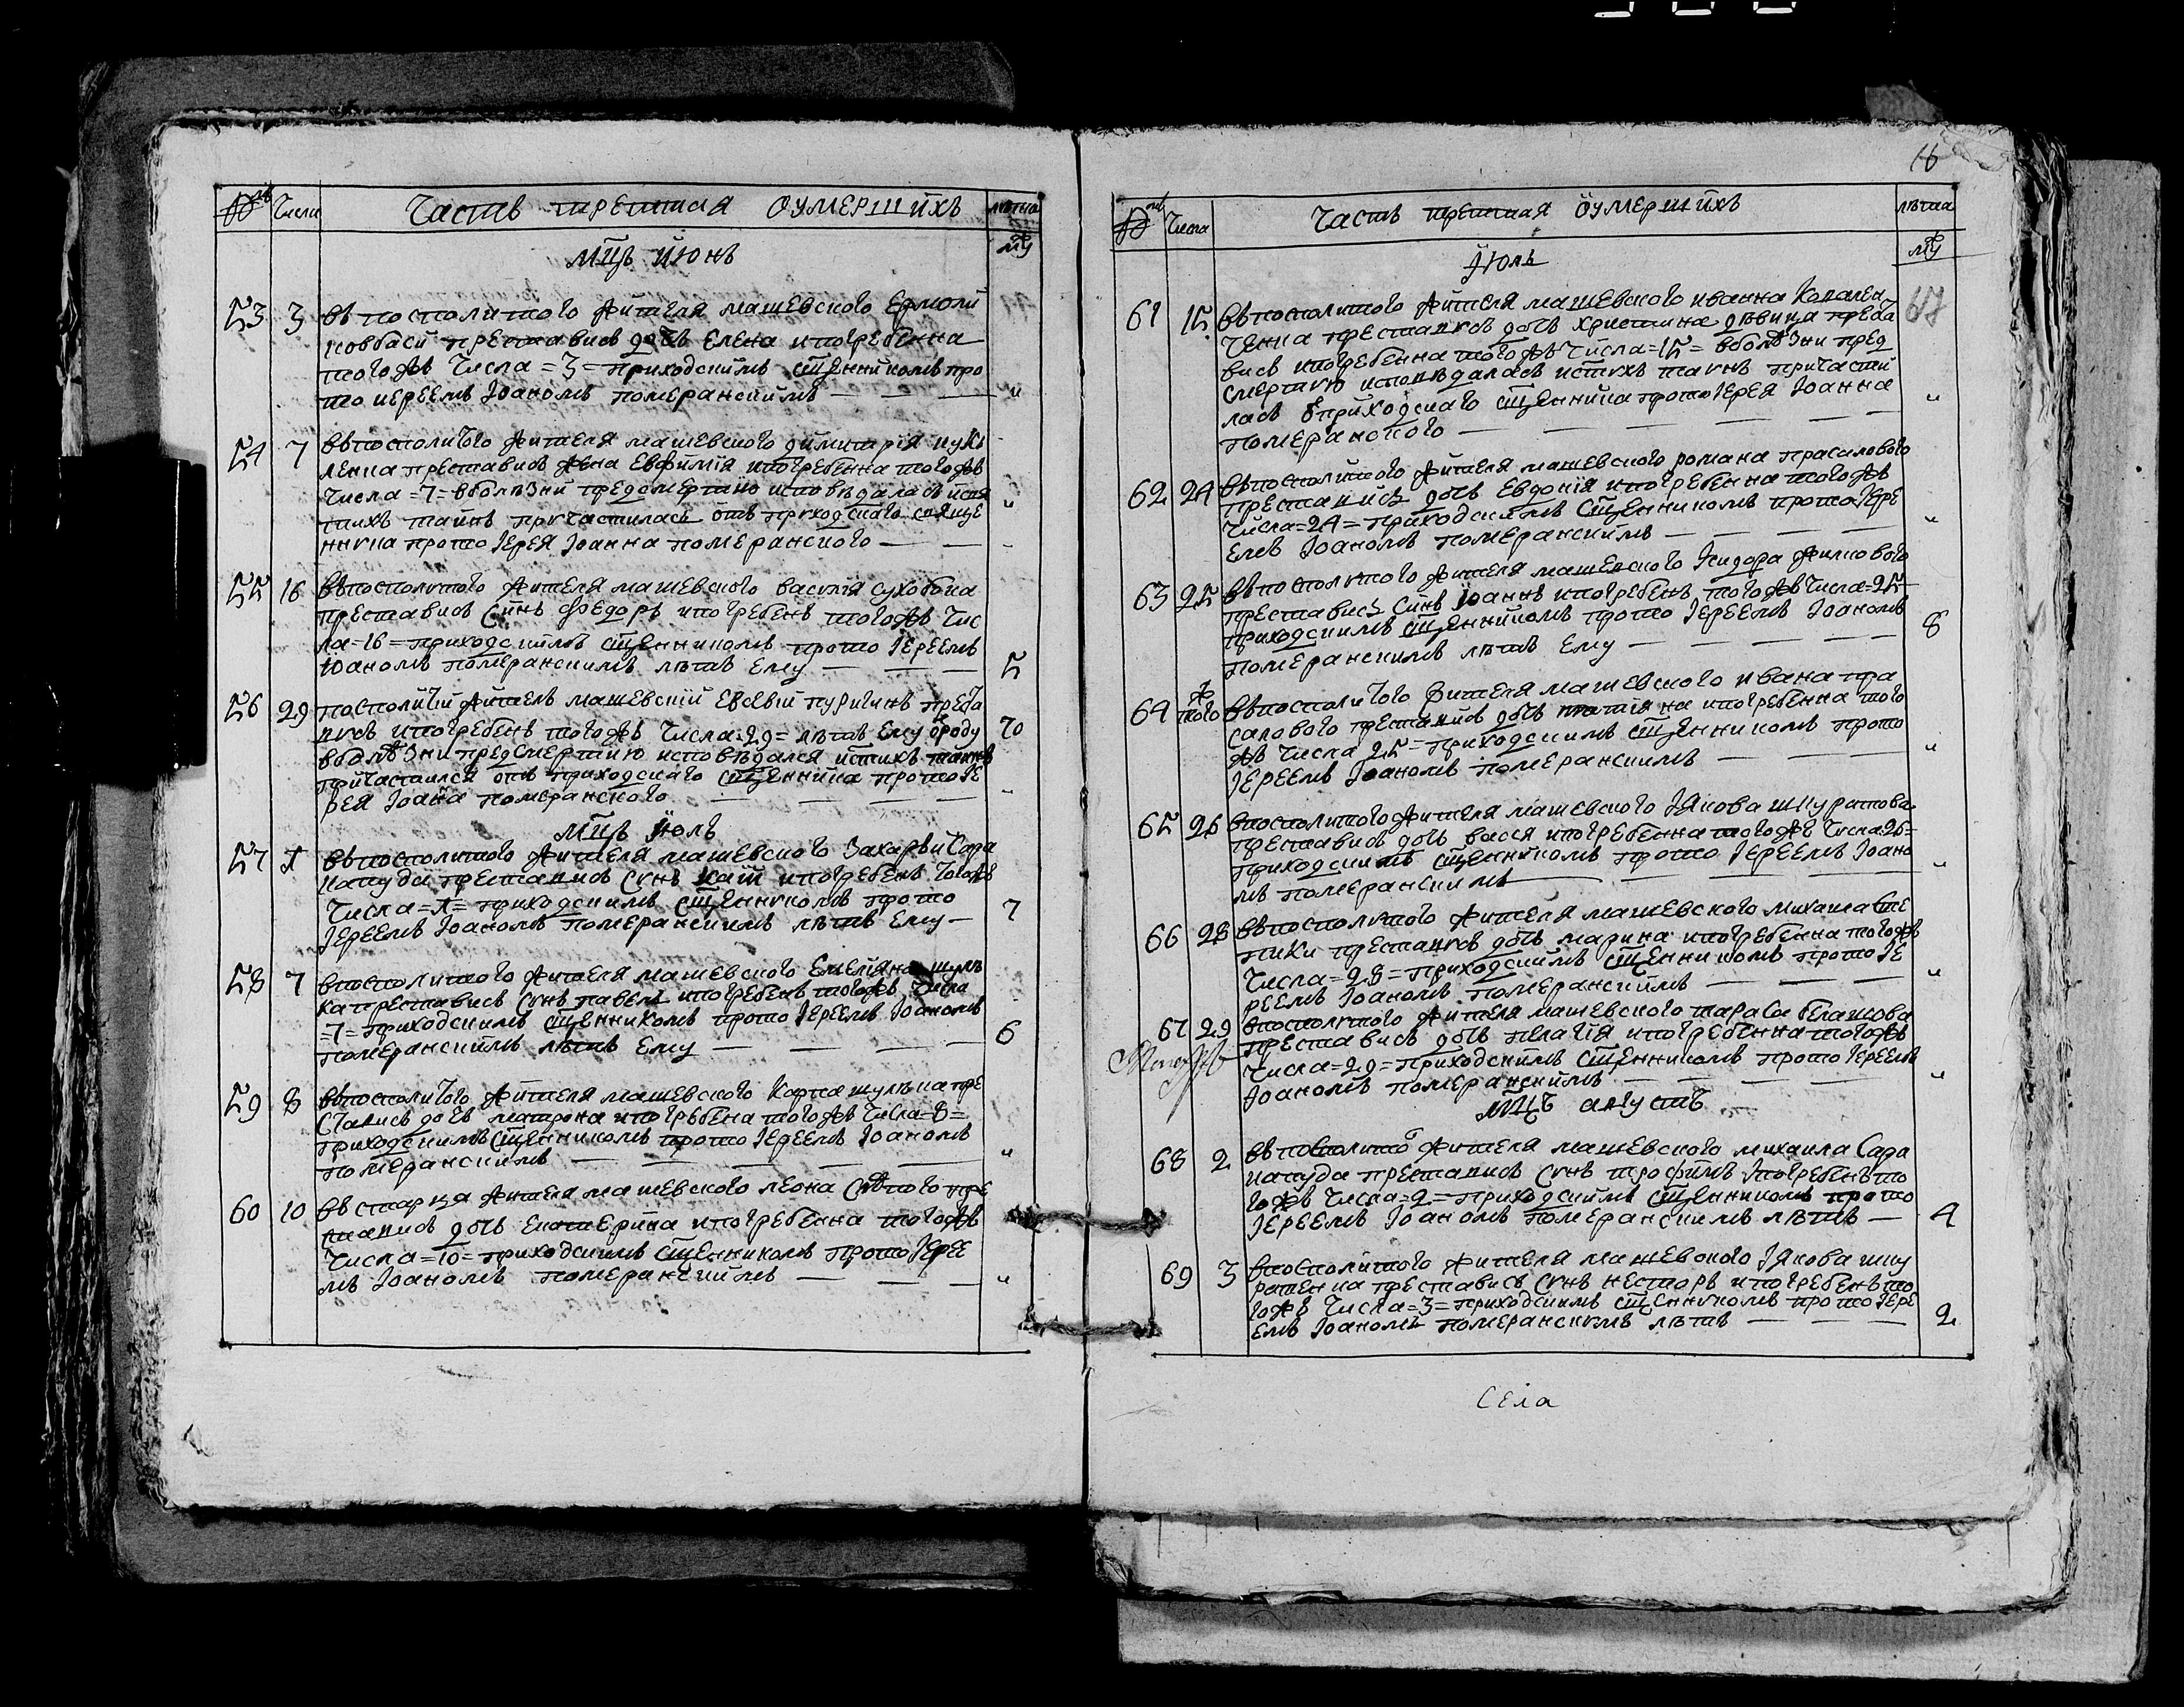 № Числа Часть третиая оумершихъ лѣта
мц
мцъ июнь
53 3 въ посполитого жителя машевского Ермоли
ковбаси преставись дочъ Елена и погребенна
того жъ Числа =3= приходскимъ сщенникомъ про
то иереемъ Iоаномъ померанскимъ "
54 7 въ посполитого жителя машевского димитрiя
ленка преставись жена Евфимiя и погребенна того жъ
Числа =7= в болѣзни предсмертию исповѣдалась и свя
тихъ таинъ причастилась отъ приходского свяще
нника прото Iерея Iоанна померанского "
55 16 въ посполитого жителя машевского василiя сухобока
преставись синъ Федоръ и погребенъ того жъ Чис
ла =16= приходскимъ сщенникомъ прото Iереемъ
Iоаномъ померанскимъ лѣтъ Ему 5
56 29 посполитiй житель машевскiй Евсевiй пуригинъ преста
вись и погребенъ того жъ Числа =29= лѣтъ Ему 70
в болѣзни предсмертию исповѣдался и стихъ таинъ
причастился отъ приходского сщенника прото Iе
рея Iоана померанского
мцъ июль
57 1 въ посполитого жителя машевского Захарiи Сара
напуда преставись синъ и погребенъ того жъ
Числа =1= приходскимъ сщенникомъ прото
Iереемъ Iоаномъ померанскимъ лѣтъ Ему 7
58 7 в посполитого жителя машевского Емелiяна шуль
ка преставись синъ павелъ и погребенъ того жъ Числа
=7= приходскимъ сщенникомъ прото Iереемъ Iоаномъ
померанскимъ лѣтъ Ему 6
59 8 въ посполитого жителя машевского Карпа шулька пре
ставись дочъ матрона и погребена того жъ Числа =8=
приходскимъ сщенникомъ прото Iереемъ Iоаномъ
померанскимъ "
60 10 въ старца жителя машевского леона пре
ставись дочъ Екатерина и погребенна того жъ
Числа =10= приходскимъ сщенникомъ прото Iерее
мъ Iоаномъ померанскимъ "
16
№ Числа Часть третиая оумершихъ лѣта
мц
Июль
67
61 15 въ посполитого жителя машевского иванна Ковален
ченка преставись дочъ христина дѣвица преста
вись и погребенна того жъ Числа =15= в болѣзни пред
смертию исповѣдалась и стихъ таинъ причасти
лась от приходского сщенника прото Iерея Iоанна
померанского "
62 24 въ посполитого жителя машевского романа прасалового
преставись дочъ Евдокiя и погребенна того жъ
Числа =24= приходскимъ сщенникомъ прото Iере
емъ Iоаномъ померанскимъ "
63 25 въ посполитого жителя машевского Исидора
преставись синъ Iоаннъ и погребенъ того жъ Числа =25=
приходскимъ сщенникомъ прото Iереемъ Iоаномъ
померанскимъ лѣтъ Ему 8
64 того ж въ посполитого жителя машевского ивана пра
салового преставись дочъ татiяна и погребенна того
жъ Числа 25= приходскимъ сщенникомъ прото
Iереемъ Iоаномъ померанскимъ "
65 26 в посполитого жителя машевского Iякова шкуратова
преставись дочъ васса и погребенна того жъ Числа 26=
приходскимъ сщенникомъ прото Iереемъ Iоано
мъ померанскимъ "
66 28 въ посполитого жителя машевского михаила
преставись дочъ марина и погребенна того жъ
Числа =28= приходскимъ сщенникомъ прото Iе
реемъ Iоаномъ померанскимъ "
67 29 в посполитого жителя машевского тараса
преставись дочъ пелагiя и погребенна того жъ
Числа =29= приходскимъ сщенникомъ прото Iереемъ
Iоаномъ померанскимъ "
мцъ августъ
68 2 въ посполито жителя машевского михаила Сара
напуда преставись синъ трофимъ и погребенъ то
го жъ Числа =2= приходскимъ сщенникомъ прото
Iереемъ Iоаномъ померанскимъ лѣтъ 4
69 3 в посполитого жителя машевского Iякова шку
ратенка преставись синъ несторъ и погребенъ то
го жъ Числа =3= приходскимъ сщенникомъ прото Iере
емъ Iоаномъ померанскимъ лѣтъ 2
Села